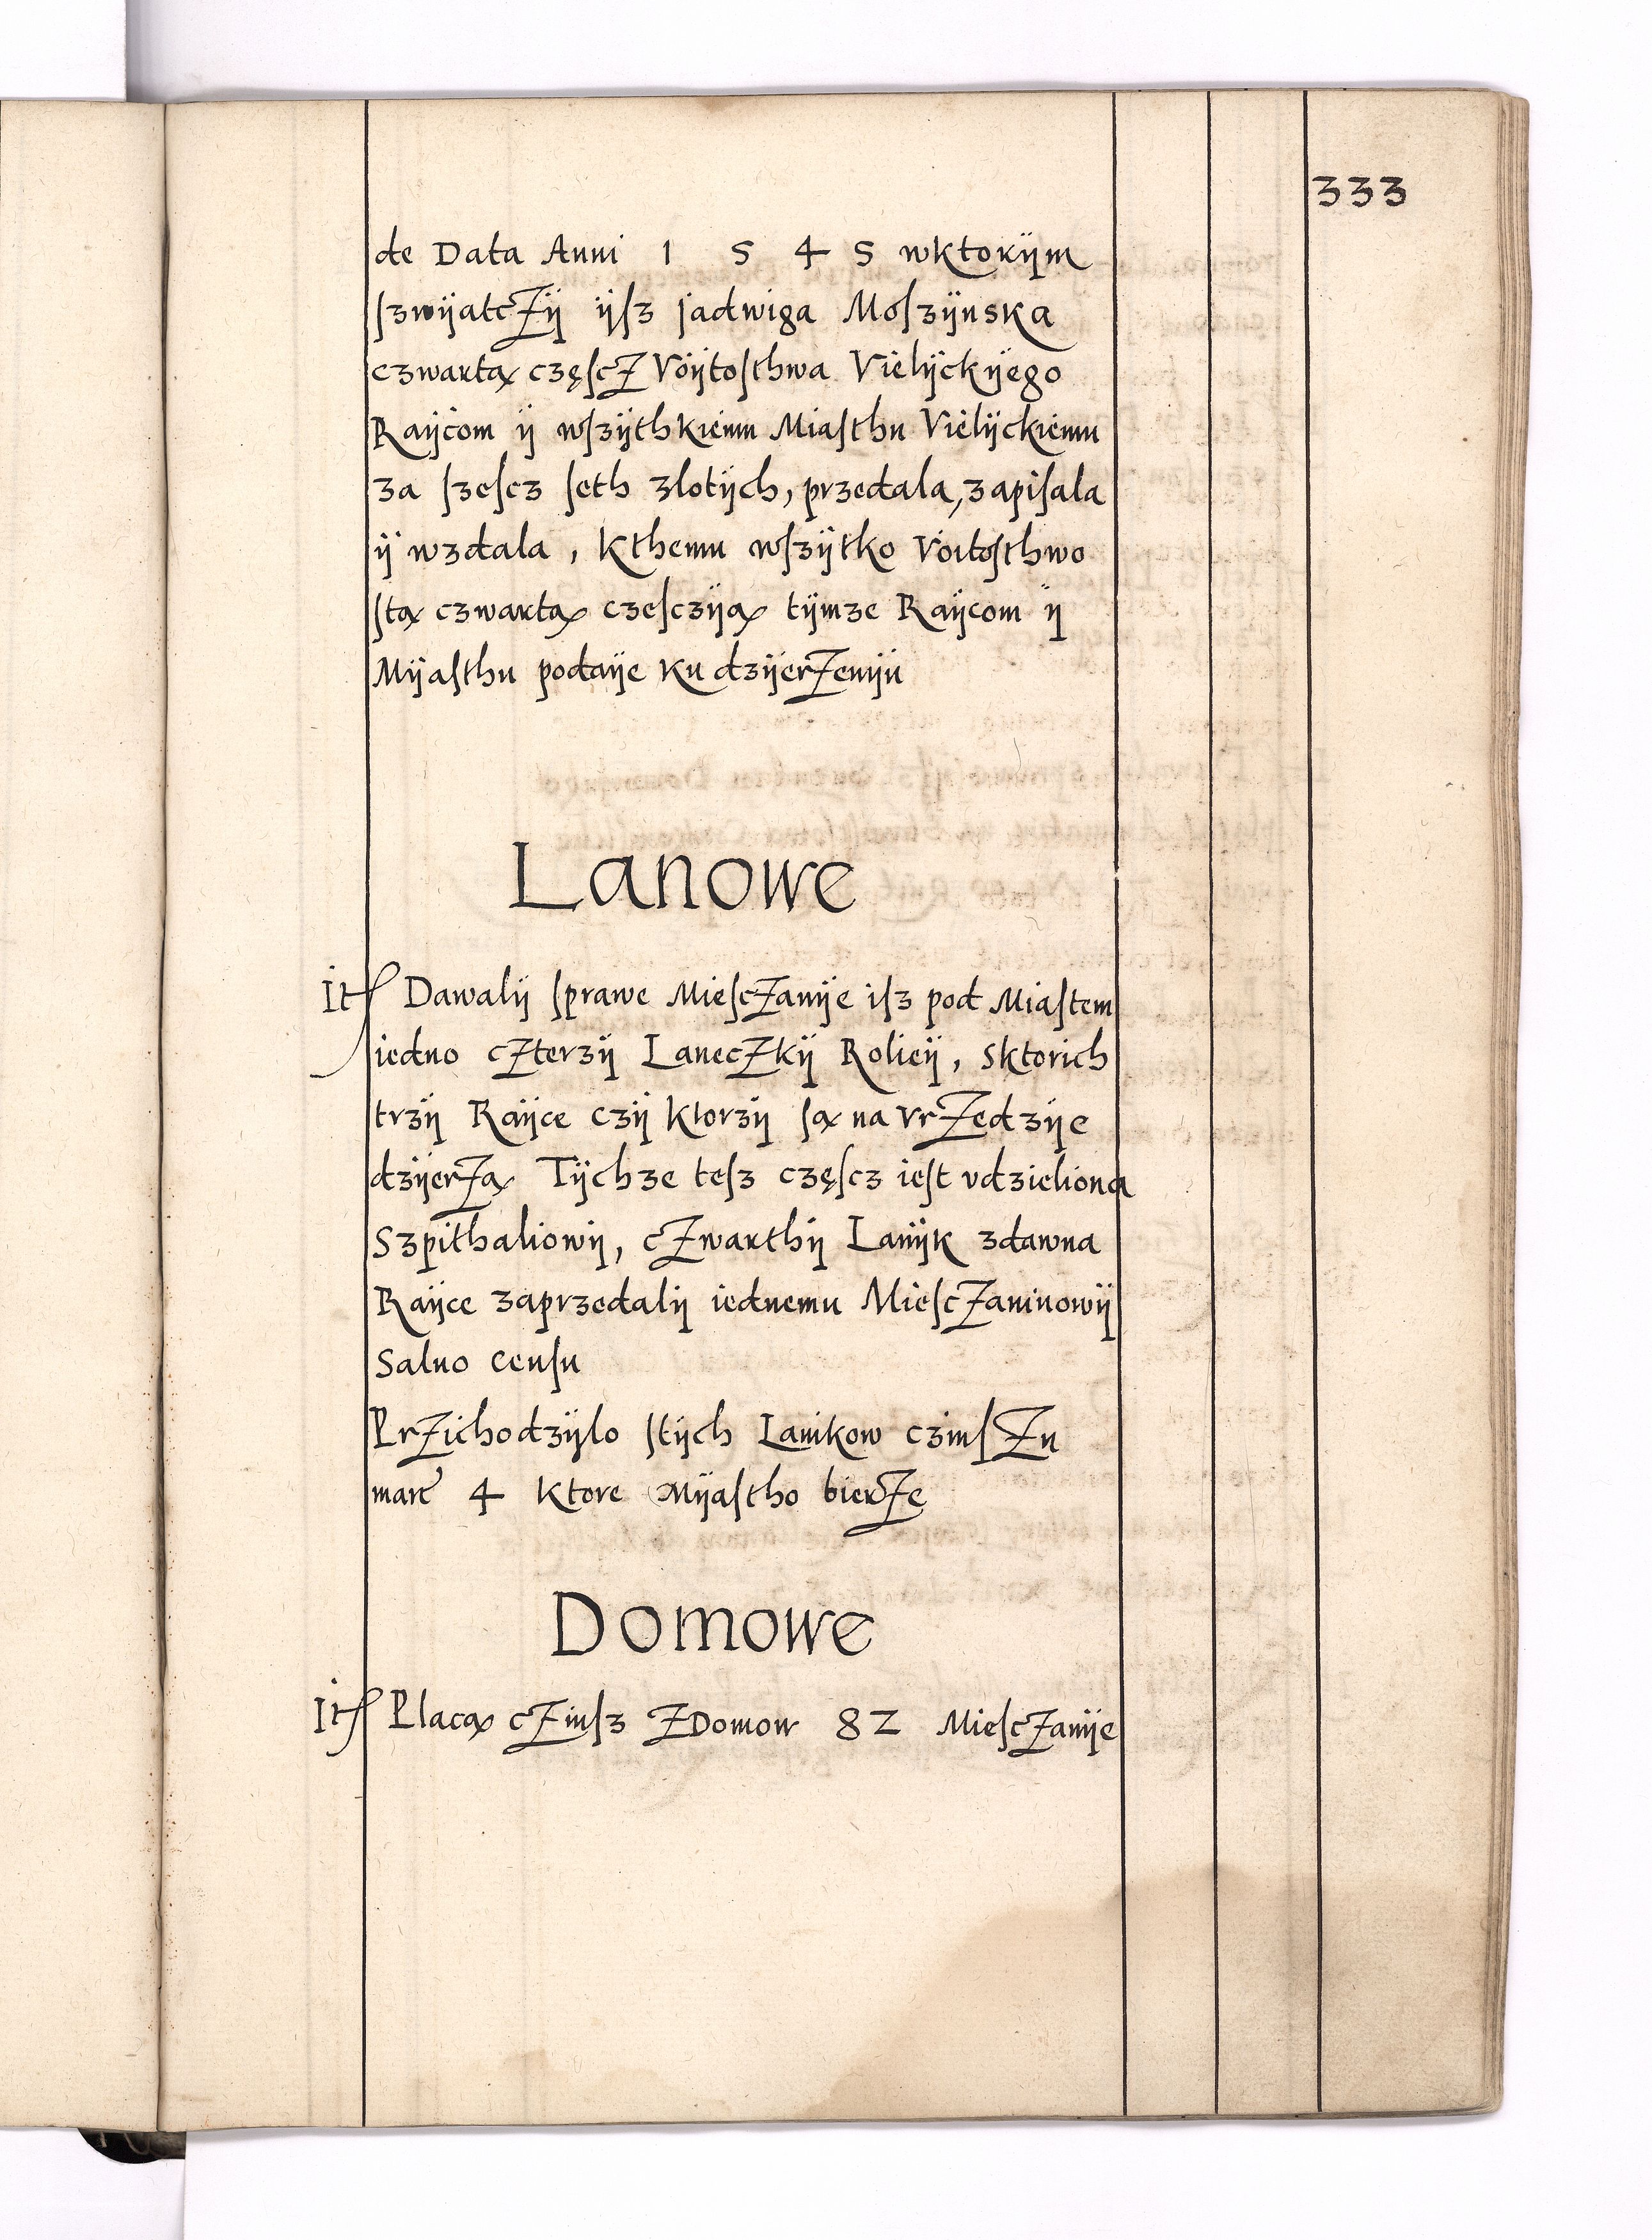 333
de Data Anni 1 5 4 5 wktorÿm
ſzwÿatcZÿ ÿſz jadwiga Moſzÿnska
czwartą częſcZ Voÿtoſthwa Vielÿckÿego
Raÿcom ÿ wſzÿthkiemu Miaſthu Vielÿckiemu
za ſzeſcz ſeth zlotÿch, przedala, zapiſala
ÿ wzdala, kthemu wſzÿtko Voitoſthwo
ſtą czwartą czeſczÿą tÿmze Raÿcom ÿ
Mÿaſthu podaÿe ku dzÿerZenÿu
Lanowe
It Dawalÿ ſprawe MieſcZanÿe iſz pod Miaſtem
iedno cZterzÿ LanecZkÿ Rolieÿ, sktorich
trzÿ Raÿce czÿ ktorzÿ ſą na vrZedzÿe
dzÿerZą Tÿchze teſz częſcz ieſt vdzieliona
Szpithaliowÿ, cZwarthÿ Lanÿk zdawna
Raÿce zaprzedalÿ iednemu MieſcZaninowÿ
Saluo cenſu
PrZichodzÿlo ſtÿch Lanikow czinſZu
marc 4 ktore Mÿaſtho bierZe
Domowe
It Placą cZinſz ZDomow 82 MieſcZanÿe